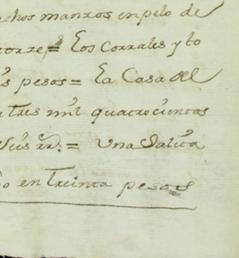 machos manzos en pelo de
torze = Los Corrales y to
s pesos = La Casa del
tres mil quatrocientos
seis rr.s = Una Salita
do en treinta pesos